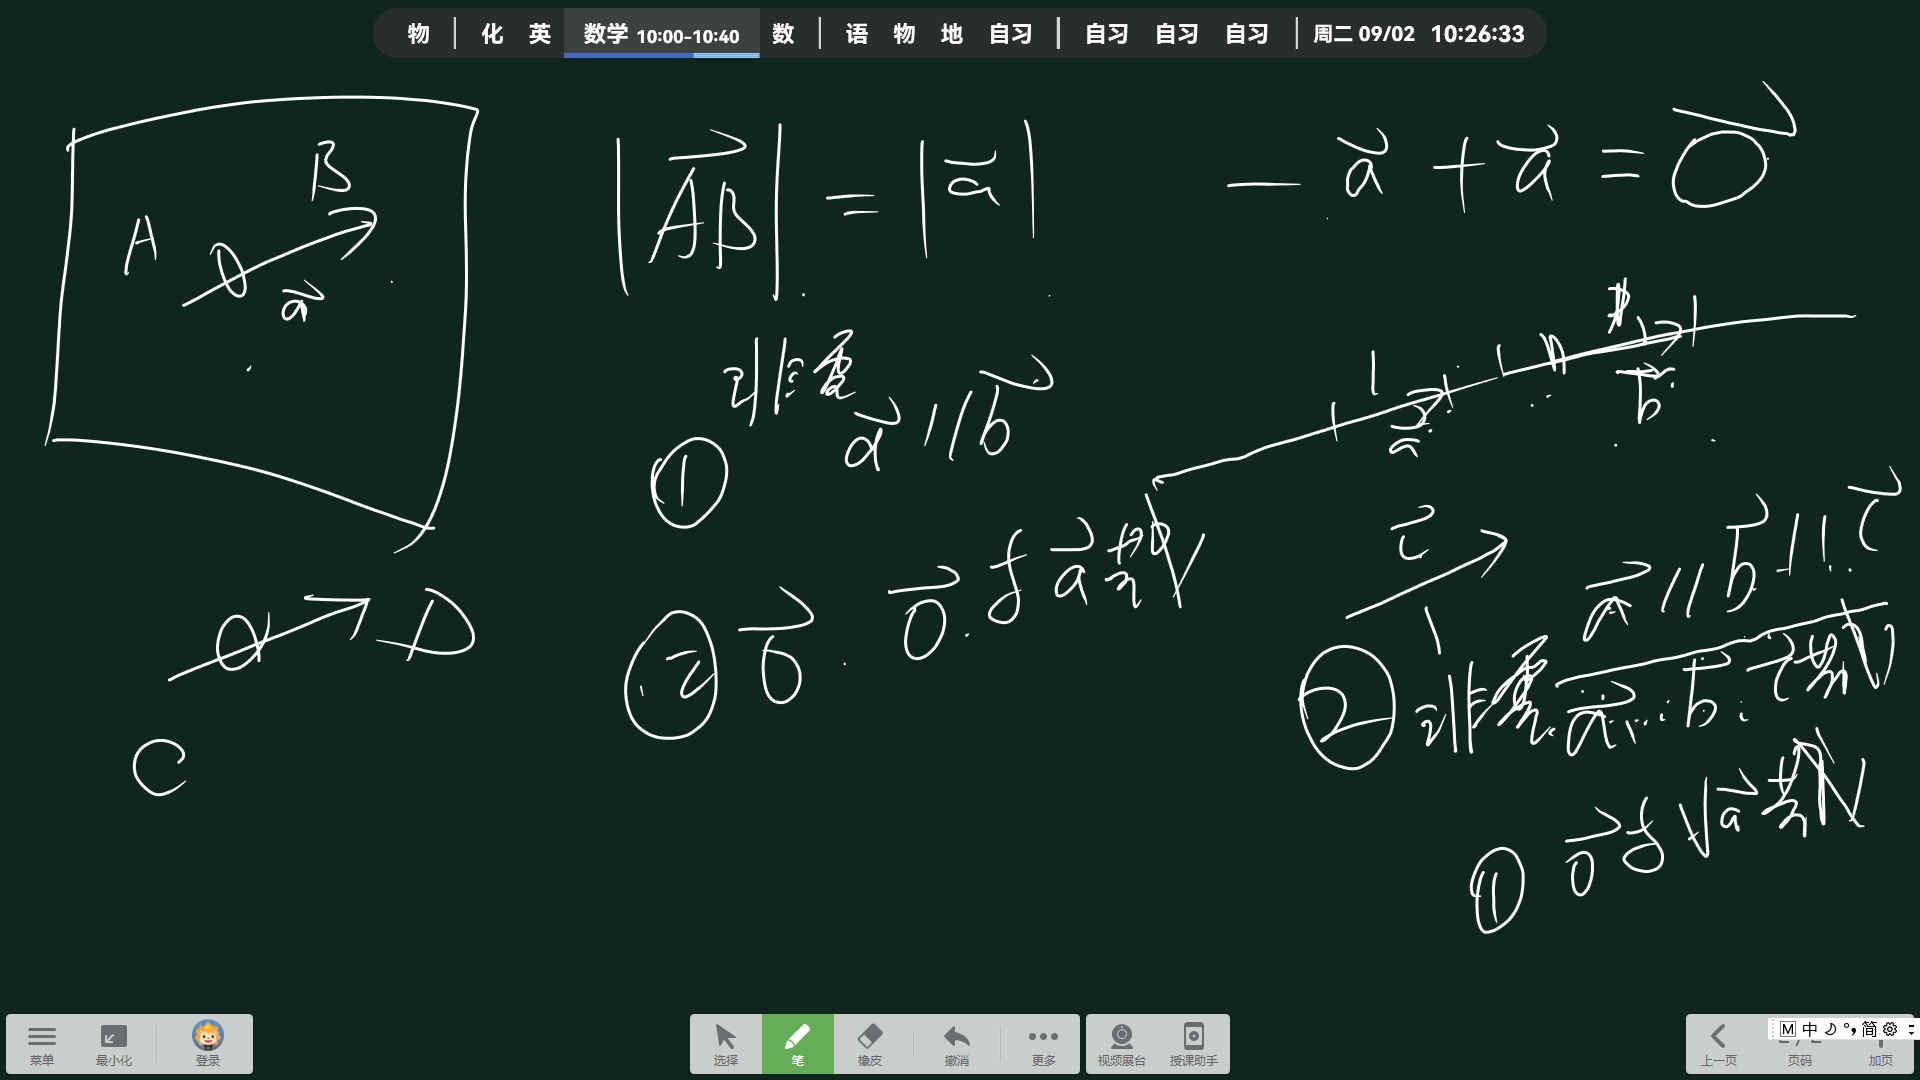 物 | 化 英 数学 10:00-10:40 数 | 语 物 地 自习 | 自习 自习 自习 | 周二 09/02 10:26:33
A B
a⃗
|A⃗B⃗| = |a⃗|
- a⃗ + a⃗ = 0⃗
非零
a⃗ // b⃗
①
a⃗
b⃗
② 0⃗. 0⃗ 与 a⃗ 共线
c⃗
a⃗ // b⃗ // c⃗
② 非零 a⃗ b⃗ c⃗ 共线
① 0⃗ 与 ∀a⃗ 共线
a D
C
菜单 最小化 登录
选择 笔 橡皮 撤消 更多
视频展台 授课助手
M 中 简
上一页 页码 加页